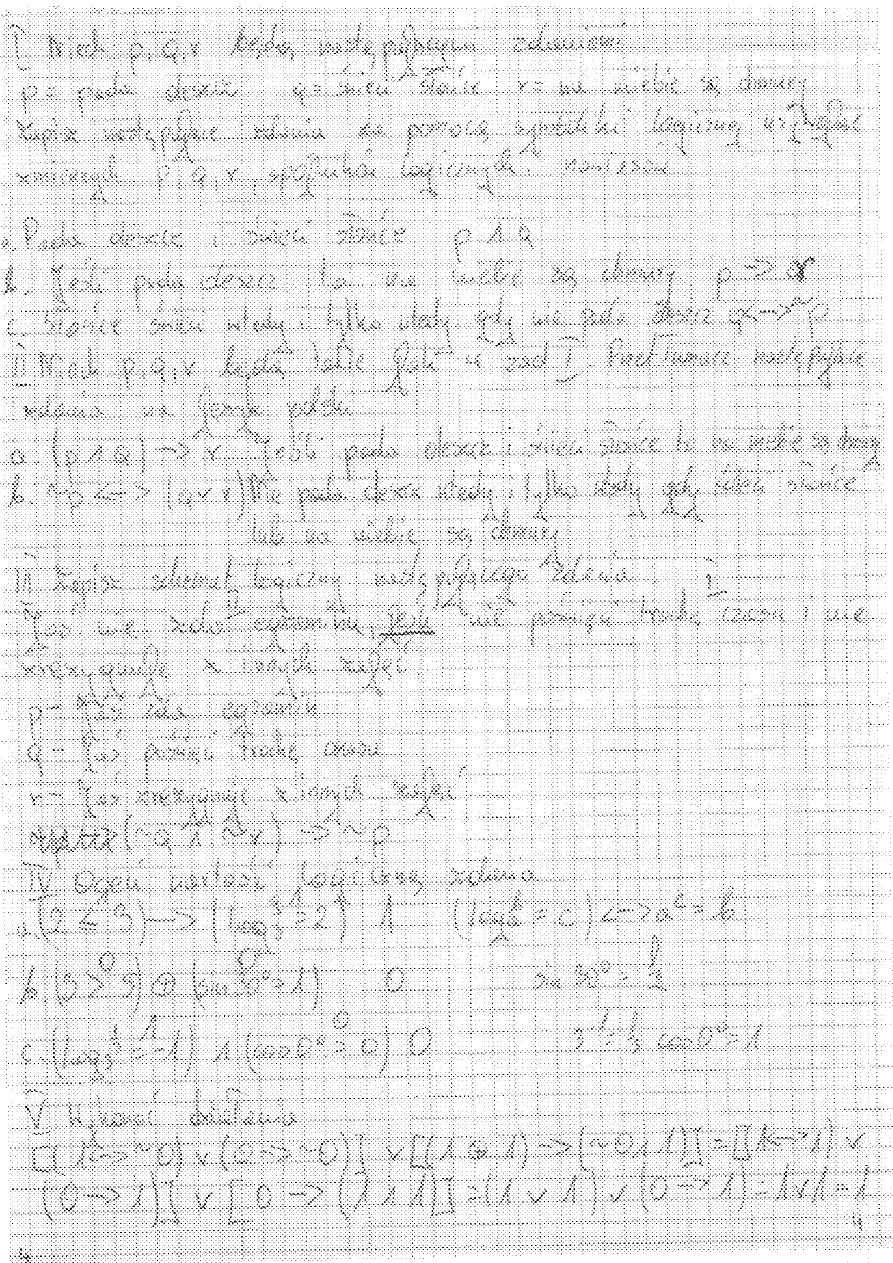 I Niech p, q, r będą następującymi zdaniami
p= pada deszcz q= świeci słońce r= na niebie są chmury
Zapisz następujące zdania za pomocą symboliki logicznej
zmiennych p, q, r, spójników logicznych i nawiasów
a. Pada deszcz i świeci słońce p ∧ q
b. Jeśli pada deszcz to na niebie są chmury p -> r
c. Słońce świeci wtedy i tylko wtedy gdy nie pada deszcz q<->~p
II Niech p, q, r będą takie jak w zad I. Przetłumacz następujące
zdania na język polski
a. (p ∧ q) -> r Jeśli pada deszcz i świeci słońce to na niebie są chmury
b. ~p <-> (q ∨ r) Nie pada deszcz wtedy i tylko wtedy gdy świeci słońce
lub na niebie są chmury
III Zapisz schemat logiczny następującego zdania. I
II
Jaś nie zda egzaminu, jeśli nie poświęci trochę czasu i nie
zrezygnuje z innych zajęć.
p- Jaś zda egzamin
q- Jaś poświęci trochę czasu
r- Jaś zrezygnuje z innych zajęć
(~q ∧ ~r) -> ~p
IV Oceń wartość logiczną zdania
a. (2 ≤ 3) -> ( = 2) 1 ( = c) <-> a^c = b
b. (3 > 9) ⊕ (sin 30° = 1) 0 sin 30° = 1/2
c. ( = -1) ∧ (cos 0° = 0) 0 cos 0° = 1
V Wykonać działania
[(1 <-> ~0) ∨ (0 -> ~0)] ∨ [(1 ⊕ 1) -> (~0 ∧ 1)] = [(1 <-> 1) ∨
(0 -> 1)] ∨ [0 -> (1 ∧ 1)] = (1 ∨ 1) ∨ (0 -> 1) = 1 ∨ 1 = 1